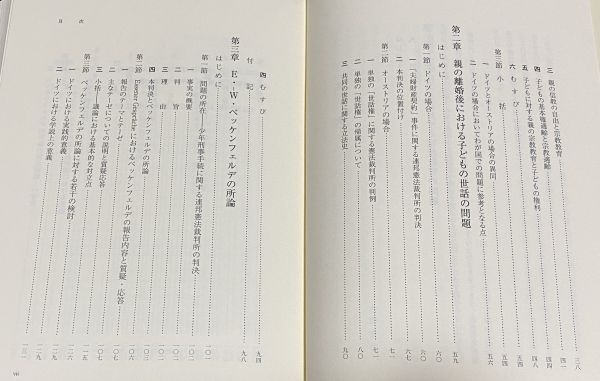 三 親の信教の自由と宗教教育 三八
四 子どもの基本権適齢と宗教適齢 四一
五 子どもに対する親の宗教教育と子どもの権利 四四
六 むすび 四八
第三節 小括 五四
一 ドイツとオーストリアの場合の異同 五四
二 ドイツの場合においてわが国での問題に参考となる点 五六
第二章 親の離婚後における子どもの世話の問題 五九
はじめに 六〇
第一節 ドイツの場合 六〇
一 「夫婦財産契約」事件に関する連邦憲法裁判所の判決
二 本判決の位置付け
第二節 オーストリアの場合 七一
一 単独の「世話権」に関する憲法裁判所の判例
二 単独の「世話権」の帰属について
三 共同の世話に関する立法史 九〇
目次
四 むすび 九四
付記 九八
第三章 E・W・ベッケンフェルデの所論
はじめに
第一節 問題の所在――少年刑事手続に関する連邦憲法裁判所の判決 一〇二
一 事実の概要 一〇二
二 判旨 一〇二
三 理由
四 本判決とベッケンフェルデの所論 一〇三
第二節 Essener Gespräche におけるベッケンフェルデの報告内容と質疑・応答
一 報告のテーマとテーゼ
二 主なテーゼについての説明と質疑応答 一〇七
三 小括――議論における基本的な対立点
第三節 ベッケンフェルデの所論に対する若干の検討 一二九
一 ドイツにおける実践的意義 一二九
二 ドイツにおける学説上の意義
vii